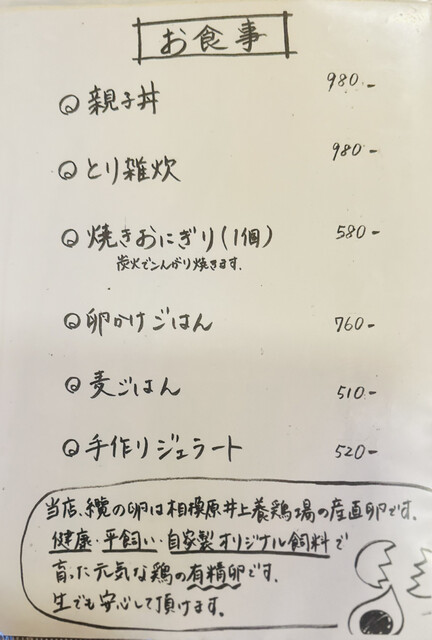 お食事
親子丼 980.-
とり雑炊 980-
焼きおにぎり(1個) 580-
炭火でこんがり焼きます.
卵かけごはん 760-
麦ごはん 510-
手作りジェラート 520-
当店、纜の卵は相模原井上養鶏場の産直卵です.
健康・平飼い・自家製オリジナル飼料で
育った元気な鶏の有精卵です.
生でも安心して頂けます.